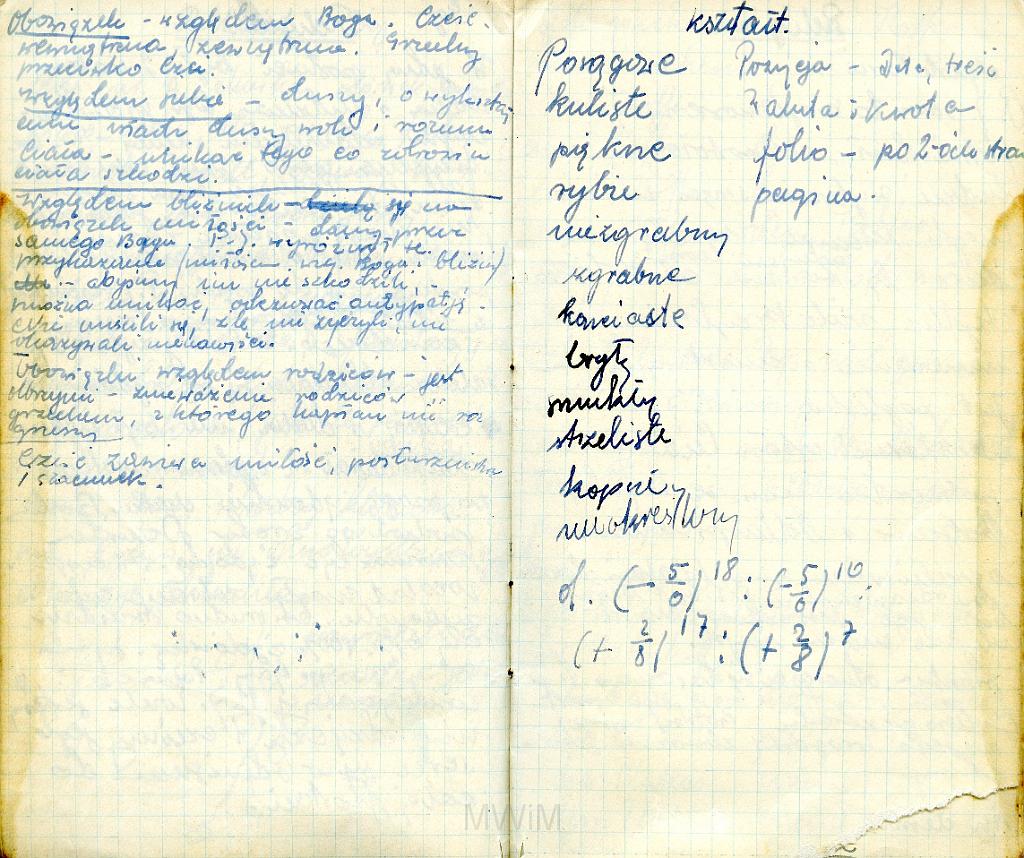 Obowiązek - względem Boga. Cześć -
wewnętrzna, zewnętrzna. Grzechy
przeciwko czci.
Względem siebie - duszy, o wykształ
cenie władz duszy woli i rozumu
Ciała - unikać tego co zdrowiu
ciała szkodzi.
Względem bliźnich się na
obowiązek miłości - dany przez
samego Boga. P. J.
przykazanie (miłości Boga i bliźn)
- abyśmy im nie szkodzili,
można unikać, odczuwać antypatję -
nie mścili się, źle nie życzyli, nie
okazywali nienawiści.
Obowiązki względem rodziców - jest
olbrzymi - znieważenie rodziców
grzechem, z którego kapłan nie roz
grzeszy
Cześć zawiera miłość, posłuszeństwo
i szacunek.
kształt.
Posągowe
kuliste
piękne
rybie
niezgrabny
zgrabne
kanciaste
bryły
smukły
strzeliste
kopni
nieokreślony
Pozycja - Data, treść
Waluta i kwota
folio - po 2-óch stron
pagina.
d. (- 5/6)^18 : (- 5/6)^10 :
(+ 2/8)^17 : (+ 2/8)^7
MWiM